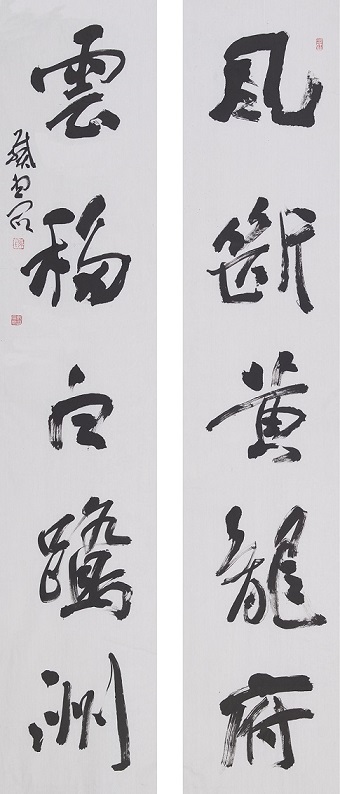 風斷黄龍府
雲移白鷺洲